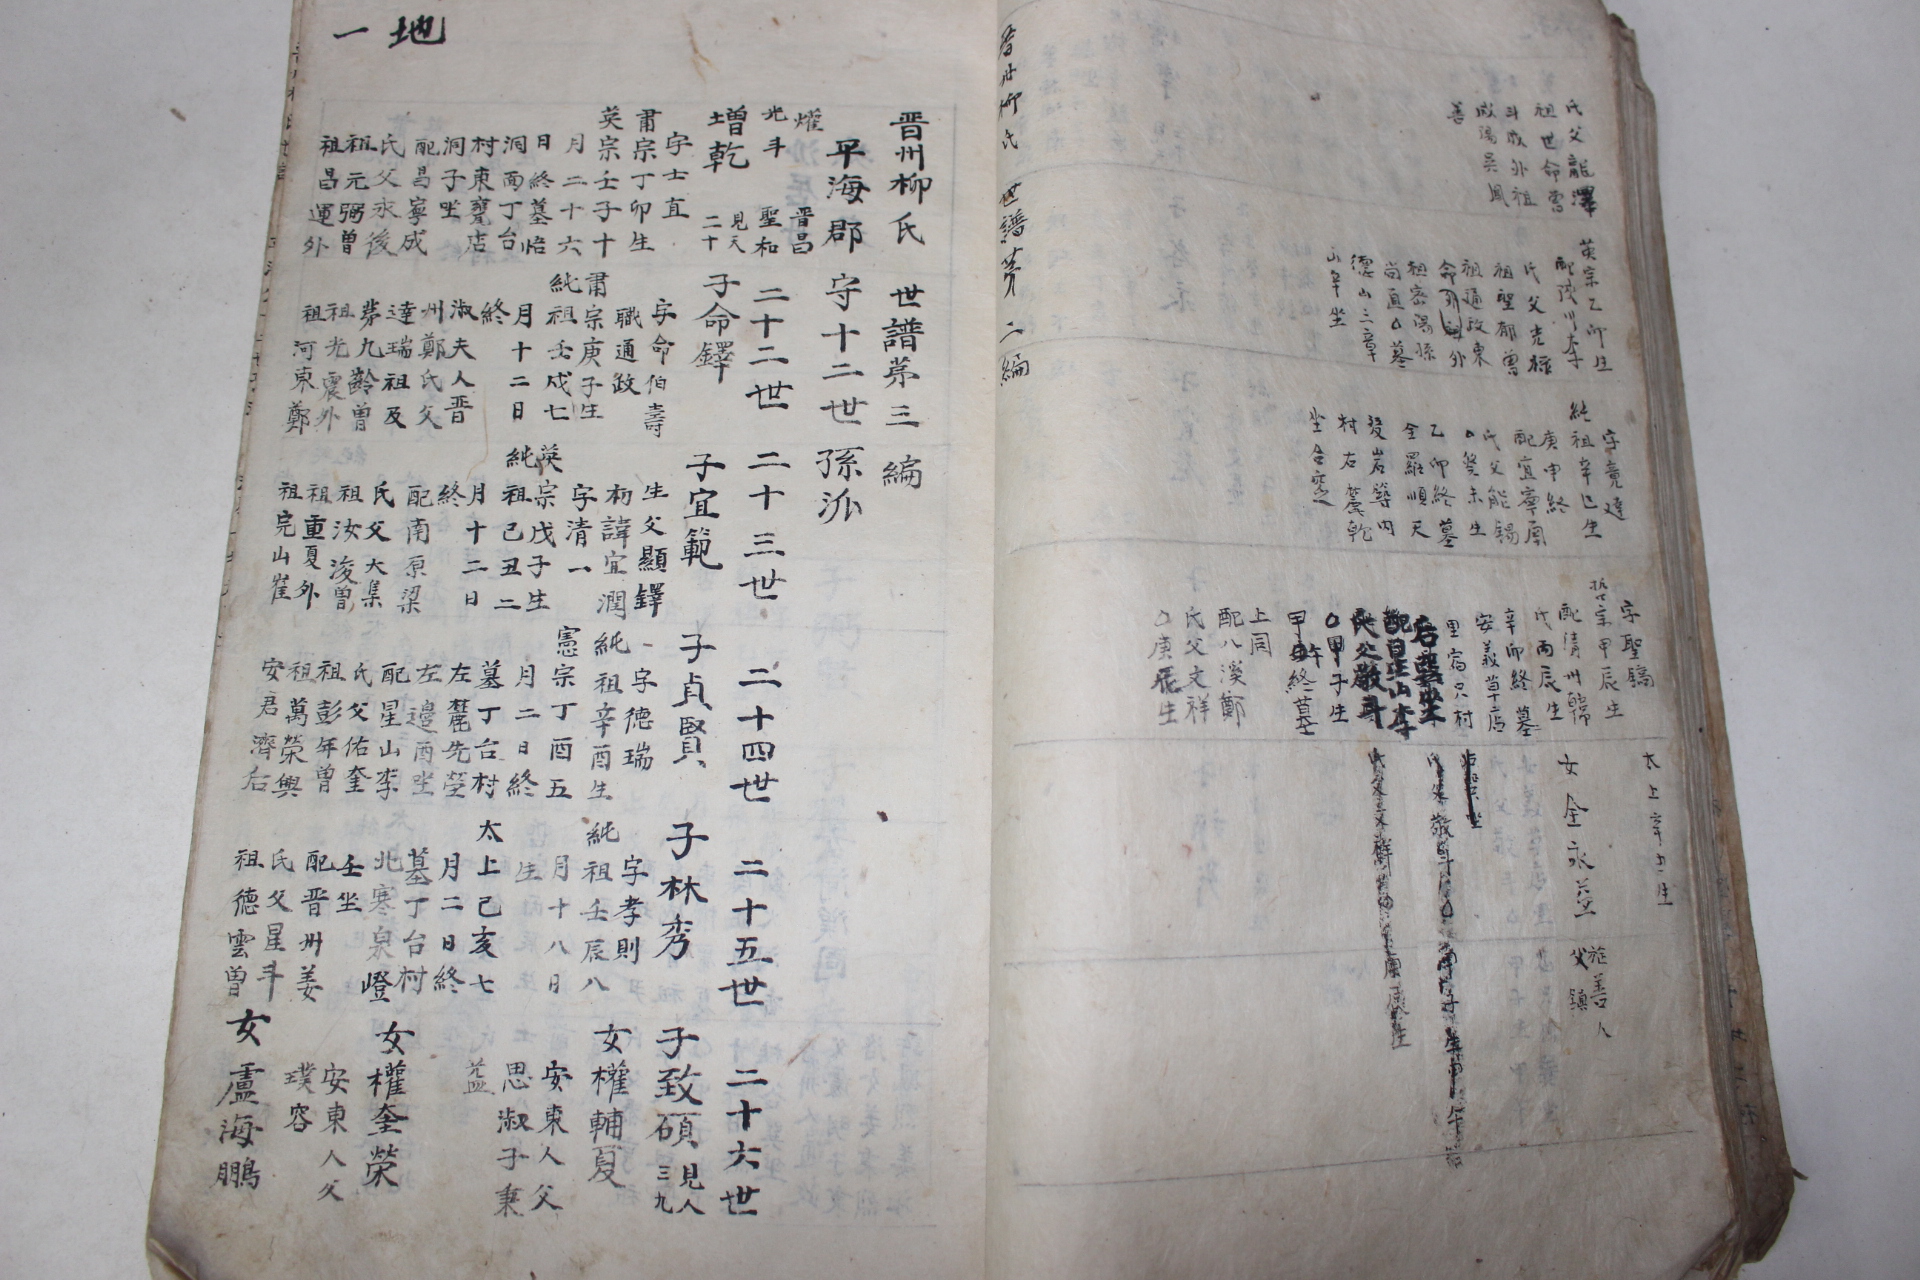 氏父龍澤
祖世命曾
斗成外祖
咸陽吳鳳
善
英宗乙卯生
配陜川李
氏父光祿
祖聖郁曾
祖通政東
祖密陽孫
尚直 墓
德山三章
山辛坐
字竟達
純祖辛巳生
庚申終
配宜寧南
氏父能錫
癸未生
乙卯終墓
全羅順天
發岩嶝內
村右麓乾
坐合窆
字聖鎬
哲宗甲辰生
配清州韓
氏丙辰生
辛卯終墓
安義草店
里富只村
配星山李
氏父敬斗
甲子生
甲午終墓
上同
配八溪鄭
氏父文祥
庚辰生
女全永益
旌善人
父鎮
晋州柳氏 世譜苐二編
地一
晋州柳氏 世譜苐三編
平海郡守十二世孫派
燿 晋昌
光斗 聖和
二十二世 二十三世 二十四世 二十五世 二十六世
增乾 見天二十
字士直
肅宗丁卯生
英宗壬子十
月二十六
日終墓
洞面丁台
村東甕店
洞子坐
配昌寧成
氏父永後
祖元弼曾
祖昌運外
子命鐸
字命伯壽
職通政
肅宗庚子生
純祖壬戌七
月十二日
終
淑夫人晋
州鄭氏父
達瑞祖及
苐九齡曾
祖光震外
祖河東鄭
子宜範
生父顯鐸
初諱宜潤
字清一
英宗戊子生
純祖己丑二
月十二日
終
配南原梁
氏父大集
祖汝浚曾
祖重夏外
祖完山崔
子貞賢
字德瑞
純祖辛酉生
憲宗丁酉五
月二日終
墓丁台村
左麓先塋
左邊酉坐
配星山李
氏父佑奎
祖彭年曾
祖萬榮興
安君濟右
子林秀
字孝則
純祖壬辰八
月十八日
生
太上己亥七
月二日終
墓丁台村
北寒泉嶝
壬坐
配晋州姜
氏父星斗
祖德雲曾
子致碩 見人三九
女權輔夏
安東人父
思淑子秉
益
女權奎榮
安東人父
璞容
女盧海鵬